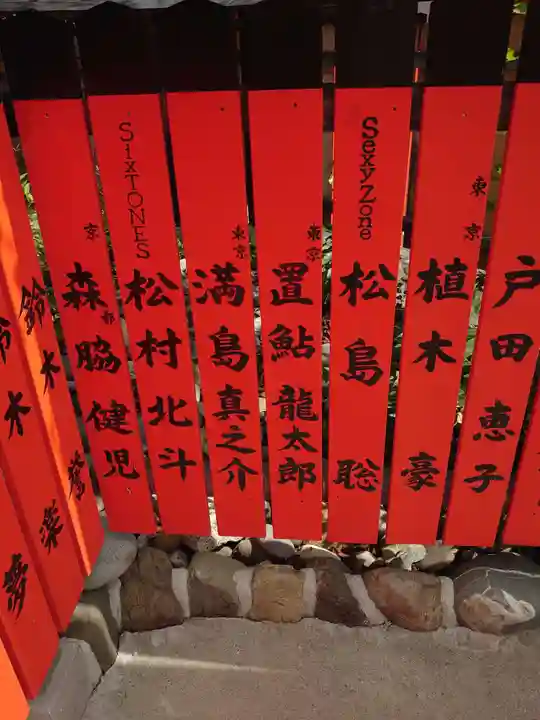 戸田恵子
東京
植木豪
SexyZone
松島聡
東京
置鮎龍太郎
東京
満島真之介
SixTONES
松村北斗
京都
森脇健児
鈴木
鈴木